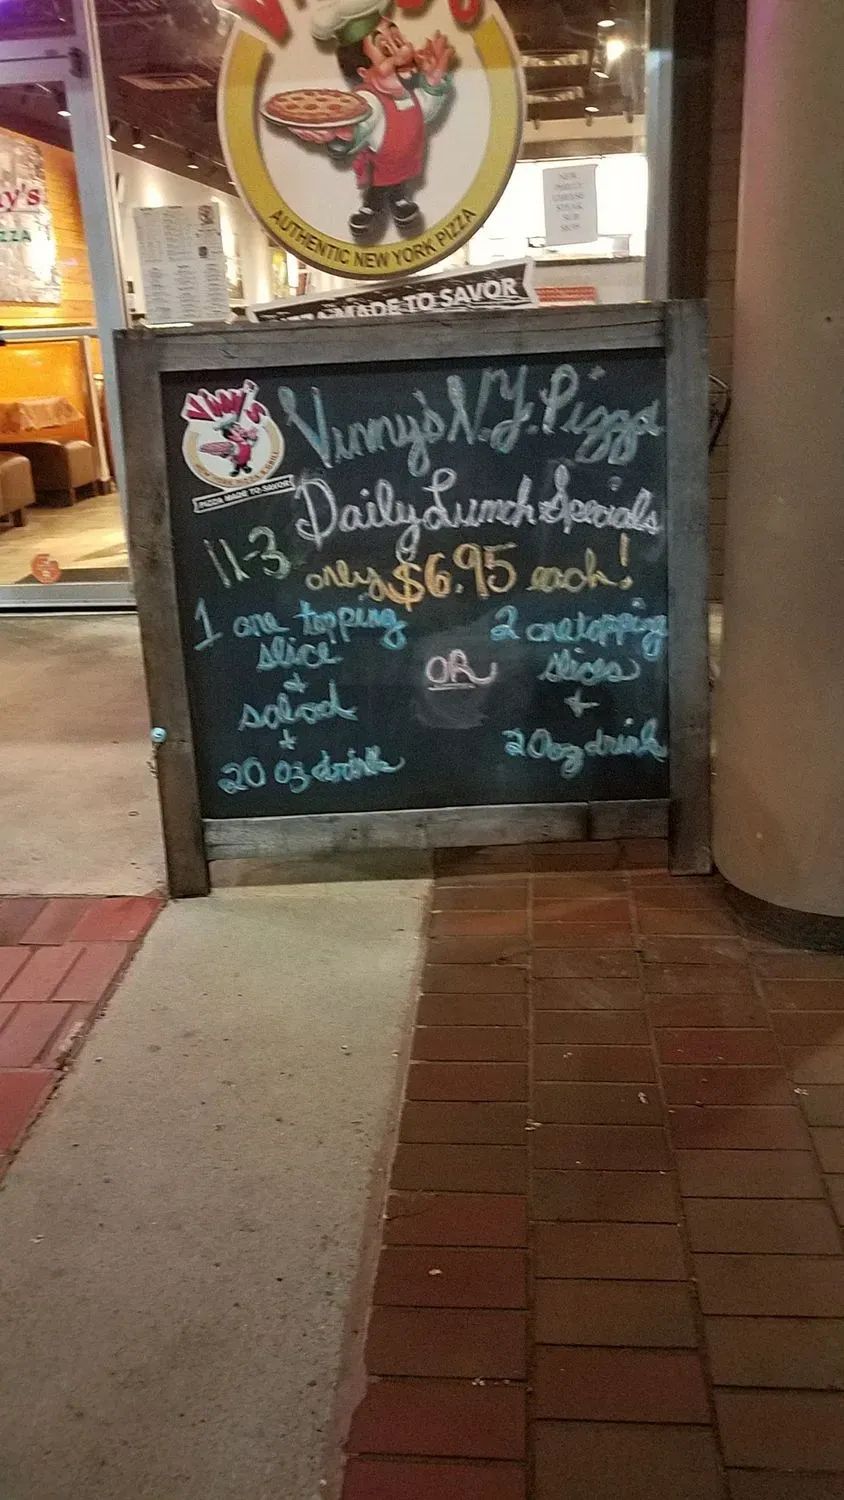 AUTHENTIC NEW YORK PIZZA
MADE TO SAVOR
NEW
PHILLY
CHEESE
STEAK
SUB
y's
ZZA
Vinny's
PIZZA MADE TO SAVOR
Vinny's N.Y. Pizza
Daily Lunch Specials
11-3 only $6.95 each!
1 one topping
slice
+
salad
+
20 oz drink
OR
2 one topping
slices
+
20oz drink